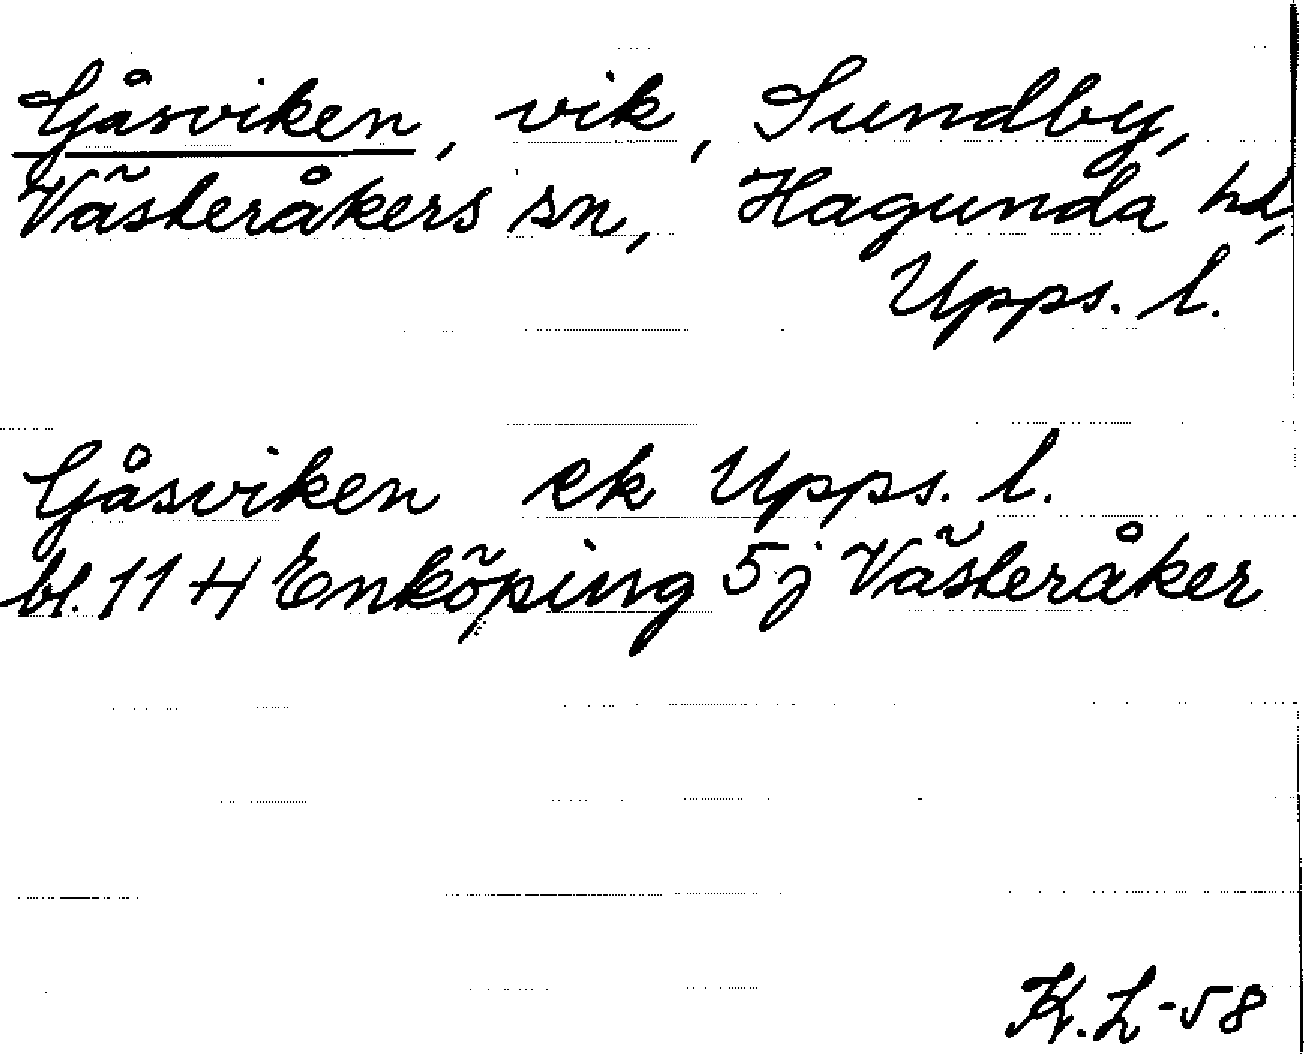 Gåsviken, vik, Sundby,
Västeråkers sn, Hagunda hd,
Upps. l.
Gåsviken ek Upps. l.
bl. 11 H Enköping 5 j Västeråker
K. L -58